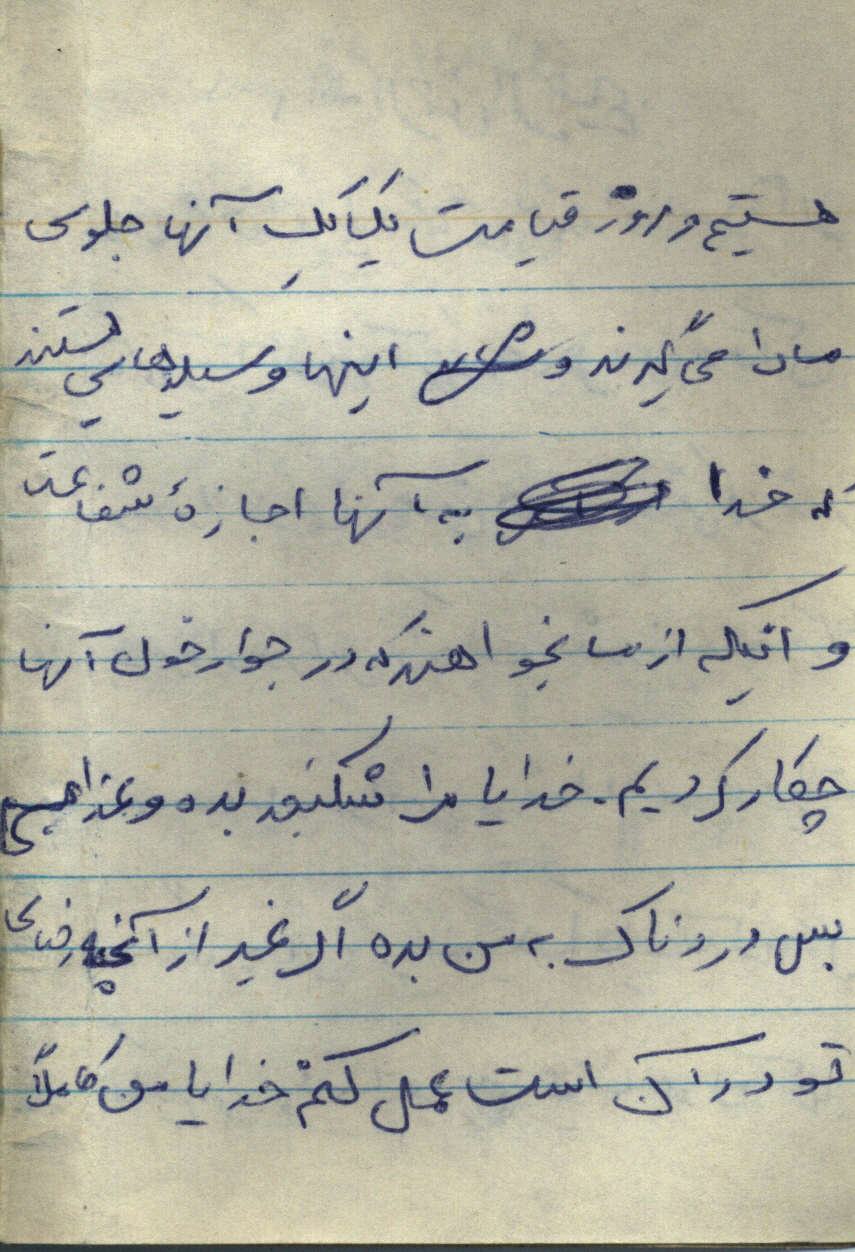 هستیم و روز قیامت یکایکِ آنها جلوی
ما را می‌گیرند و اینها وسیله‌هایی هستند
که خدا به آنها اجازهٔ شفاعت
و اینکه از ما نخواهند که در جوار خون آنها
چکار کردیم. خدایا مرا شکنجه بده و عذابی
بس دردناک به من بده اگر غیر از آنچه رضای
تو در آن است عمل کنم خدایا من کاملاً